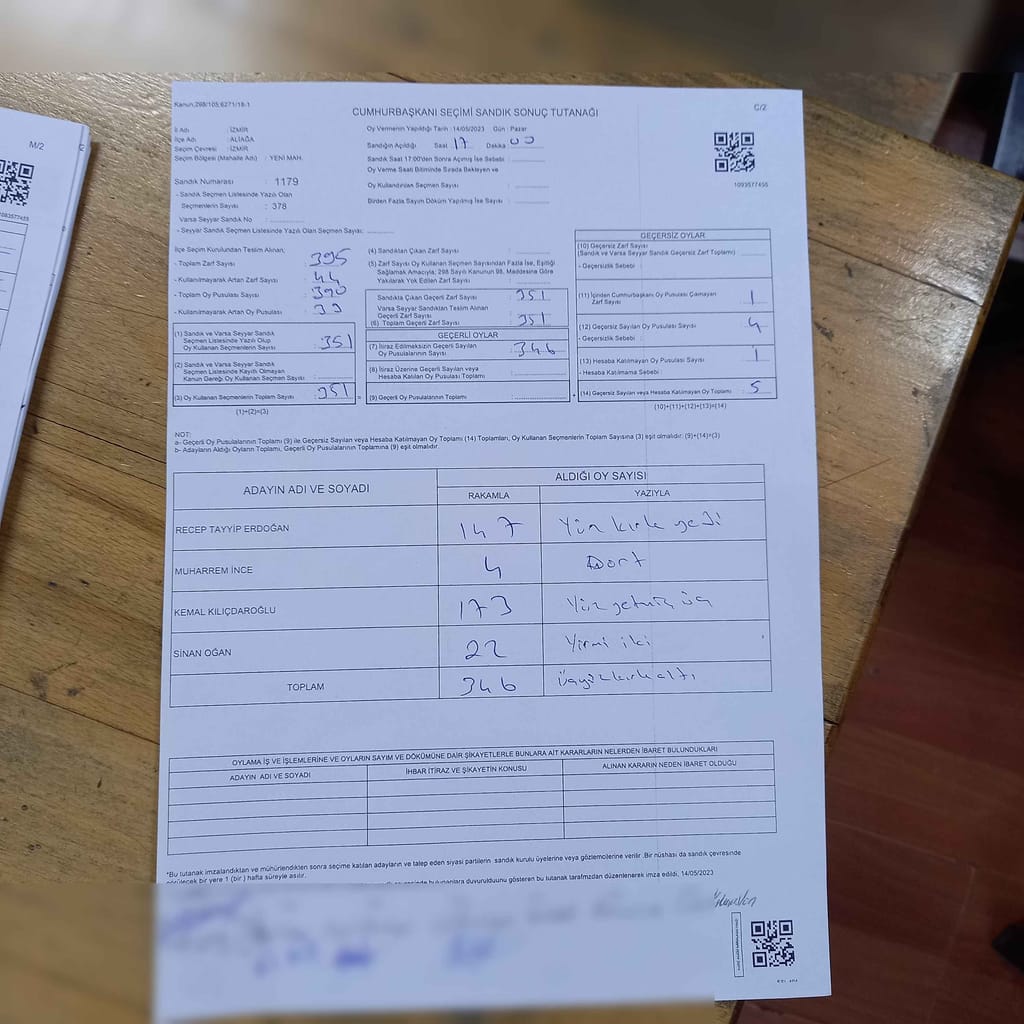 M/2
Kanun:298/105;6271/18-1
C/2
CUMHURBAŞKANI SEÇİMİ SANDIK SONUÇ TUTANAĞI
İl Adı : İZMİR
İlçe Adı : ALİAĞA
Seçim Çevresi : İZMİR
Seçim Bölgesi (Mahalle Adı) : YENİ MAH.
Oy Vermenin Yapıldığı Tarih : 14/05/2023 Gün : Pazar
Sandığın Açıldığı Saat 17 Dakika 00
Sandık Saat 17:00'den Sonra Açılmış İse Sebebi :
Oy Verme Saati Bitiminde Sırada Bekleyen ve
Oy Kullandırılan Seçmen Sayısı :
Birden Fazla Sayım Döküm Yapılmış İse Sayısı :
1093577455
Sandık Numarası : 1179
- Sandık Seçmen Listesinde Yazılı Olan
Seçmenlerin Sayısı : 378
Varsa Seyyar Sandık No :
- Seyyar Sandık Seçmen Listesinde Yazılı Olan Seçmen Sayısı:
İlçe Seçim Kurulundan Teslim Alınan;
- Toplam Zarf Sayısı : 395
- Kullanılmayarak Artan Zarf Sayısı : 44
- Toplam Oy Pusulası Sayısı : 390
- Kullanılmayarak Artan Oy Pusulası : 39
(1) Sandık ve Varsa Seyyar Sandık
Seçmen Listesinde Yazılı Olup
Oy Kullanan Seçmenlerin Sayısı : 351
(2) Sandık ve Varsa Seyyar Sandık
Seçmen Listesinde Kayıtlı Olmayan
Kanun Gereği Oy Kullanan Seçmen Sayısı :
(3) Oy Kullanan Seçmenlerin Toplam Sayısı : 351
(1)+(2)=(3)
(4) Sandıktan Çıkan Zarf Sayısı :
(5) Zarf Sayısı Oy Kullanan Seçmen Sayısından Fazla İse, Eşitliği
Sağlamak Amacıyla; 298 Sayılı Kanunun 98. Maddesine Göre
Yakılarak Yok Edilen Zarf Sayısı :
Sandıkta Çıkan Geçerli Zarf Sayısı : 351
Varsa Seyyar Sandıktan Teslim Alınan
Geçerli Zarf Sayısı
(6) Toplam Geçerli Zarf Sayısı : 351
GEÇERLİ OYLAR
(7) İtiraz Edilmeksizin Geçerli Sayılan
Oy Pusulalarının Sayısı : 346
(8) İtiraz Üzerine Geçerli Sayılan veya
Hesaba Katılan Oy Pusulası Toplamı :
(9) Geçerli Oy Pusulalarının Toplamı :
GEÇERSİZ OYLAR
(10) Geçersiz Zarf Sayısı
(Sandık ve Varsa Seyyar Sandık Geçersiz Zarf Toplamı)
- Geçersizlik Sebebi :
(11) İçinden Cumhurbaşkanı Oy Pusulası Çıkmayan
Zarf Sayısı : 1
(12) Geçersiz Sayılan Oy Pusulası Sayısı : 4
- Geçersizlik Sebebi :
(13) Hesaba Katılmayan Oy Pusulası Sayısı : 1
- Hesaba Katılmama Sebebi :
(14) Geçersiz Sayılan veya Hesaba Katılmayan Oy Toplamı : 5
(10)+(11)+(12)+(13)=(14)
NOT:
a- Geçerli Oy Pusulalarının Toplamı (9) ile Geçersiz Sayılan veya Hesaba Katılmayan Oy Toplamı (14) Toplamları, Oy Kullanan Seçmenlerin Toplam Sayısına (3) eşit olmalıdır. (9)+(14)=(3)
b- Adayların Aldığı Oyların Toplamı, Geçerli Oy Pusulalarının Toplamına (9) eşit olmalıdır.
ADAYIN ADI VE SOYADI
ALDIĞI OY SAYISI
RAKAMLA YAZIYLA
RECEP TAYYİP ERDOĞAN 147 Yüz kırk yedi
MUHARREM İNCE 4 Dört
KEMAL KILIÇDAROĞLU 173 Yüz yetmiş üç
SİNAN OĞAN 22 Yirmi iki
TOPLAM 346 Üçyüzkırkaltı
OYLAMA İŞ VE İŞLEMLERİNE VE OYLARIN SAYIM VE DÖKÜMÜNE DAİR ŞİKAYETLERLE BUNLARA AİT KARARLARIN NELERDEN İBARET BULUNDUKLARI
ADAYIN ADI VE SOYADI İHBAR İTİRAZ VE ŞİKAYETİN KONUSU ALINAN KARARIN NEDEN İBARET OLDUĞU
*Bu tutanak imzalandıktan ve mühürlendikten sonra seçime katılan adayların ve talep eden siyasi partilerin sandık kurulu üyelerine veya gözlemcilerine verilir. Bir nüshası da sandık çevresinde
görülecek bir yere 1 (bir) hafta süreyle asılır.
bulunanlara duyurulduunu gösteren bu tutanak tarafımızdan düzenlenerek imza edildi. 14/05/2023